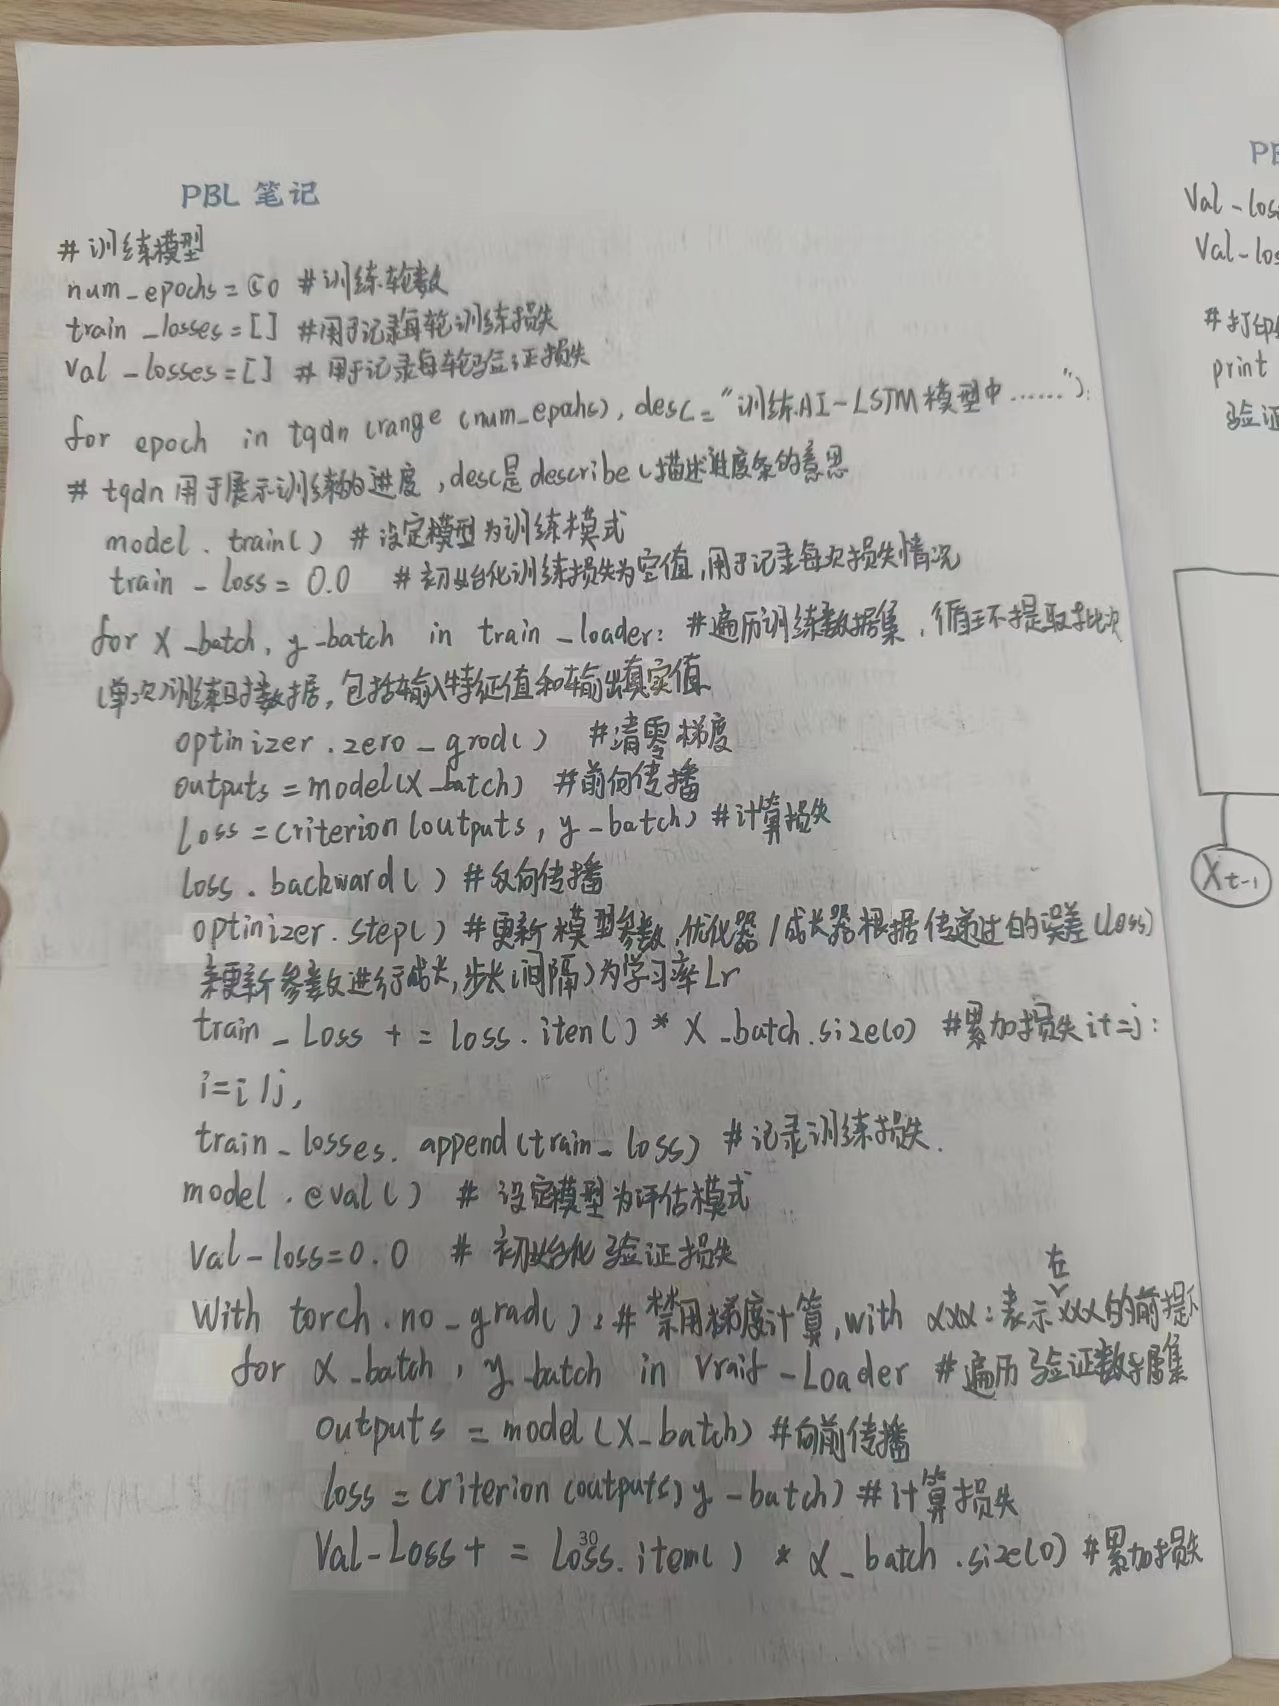 PBL 笔记
# 训练模型
num_epochs = 50 # 训练轮数
train_losses = [] #用于记录每轮训练损失
val_losses = [] # 用于记录每轮验证损失
for epoch in tqdn (range (num_epahs), desc = "训练AI-LSTM模型中……"):
# tqdn 用于展示训练的进度, desc是describe (描述进度条的意思
model. train() # 设定模型为训练模式
train_loss = 0.0 # 初始化训练损失为空值,用于记录每次损失情况
for X_batch, y_batch in train_loader: #遍历训练数据集,循环提取批次
(单次)训练数据,包括输入特征值和输出真实值
optinizer.zero_grod() #清零梯度
outputs = model(X_batch) #前向传播
loss = criterion (outputs, y_batch) #计算损失
loss. backward() #反向传播
optinizer. step() #更新模型参数,优化器/成长器根据传递过的误差(loss)
来更新参数进行成长,步长(间隔)为学习率Lr
train_Loss += loss. iten() * X_batch.size(0) #累加损失 i+=j:
i=i/j,
train_losses. append(train_loss) #记录训练损失.
model. eval() # 设定模型为评估模式
Val-loss=0.0 # 初始化验证损失
在
With torch.no_grad(): # 禁用梯度计算, with xxx: 表示xxx的前提下
for x_batch, y_batch in Vraif-Loader #遍历验证数据集
outputs = model (X_batch) #向前传播
loss = criterion (outputs, y_batch) #计算损失
Val-Loss += Loss.item() * x_batch.size(0) #累加损失
30
PB
Val-los
Val-los
#打印
print
验证
Xt-1